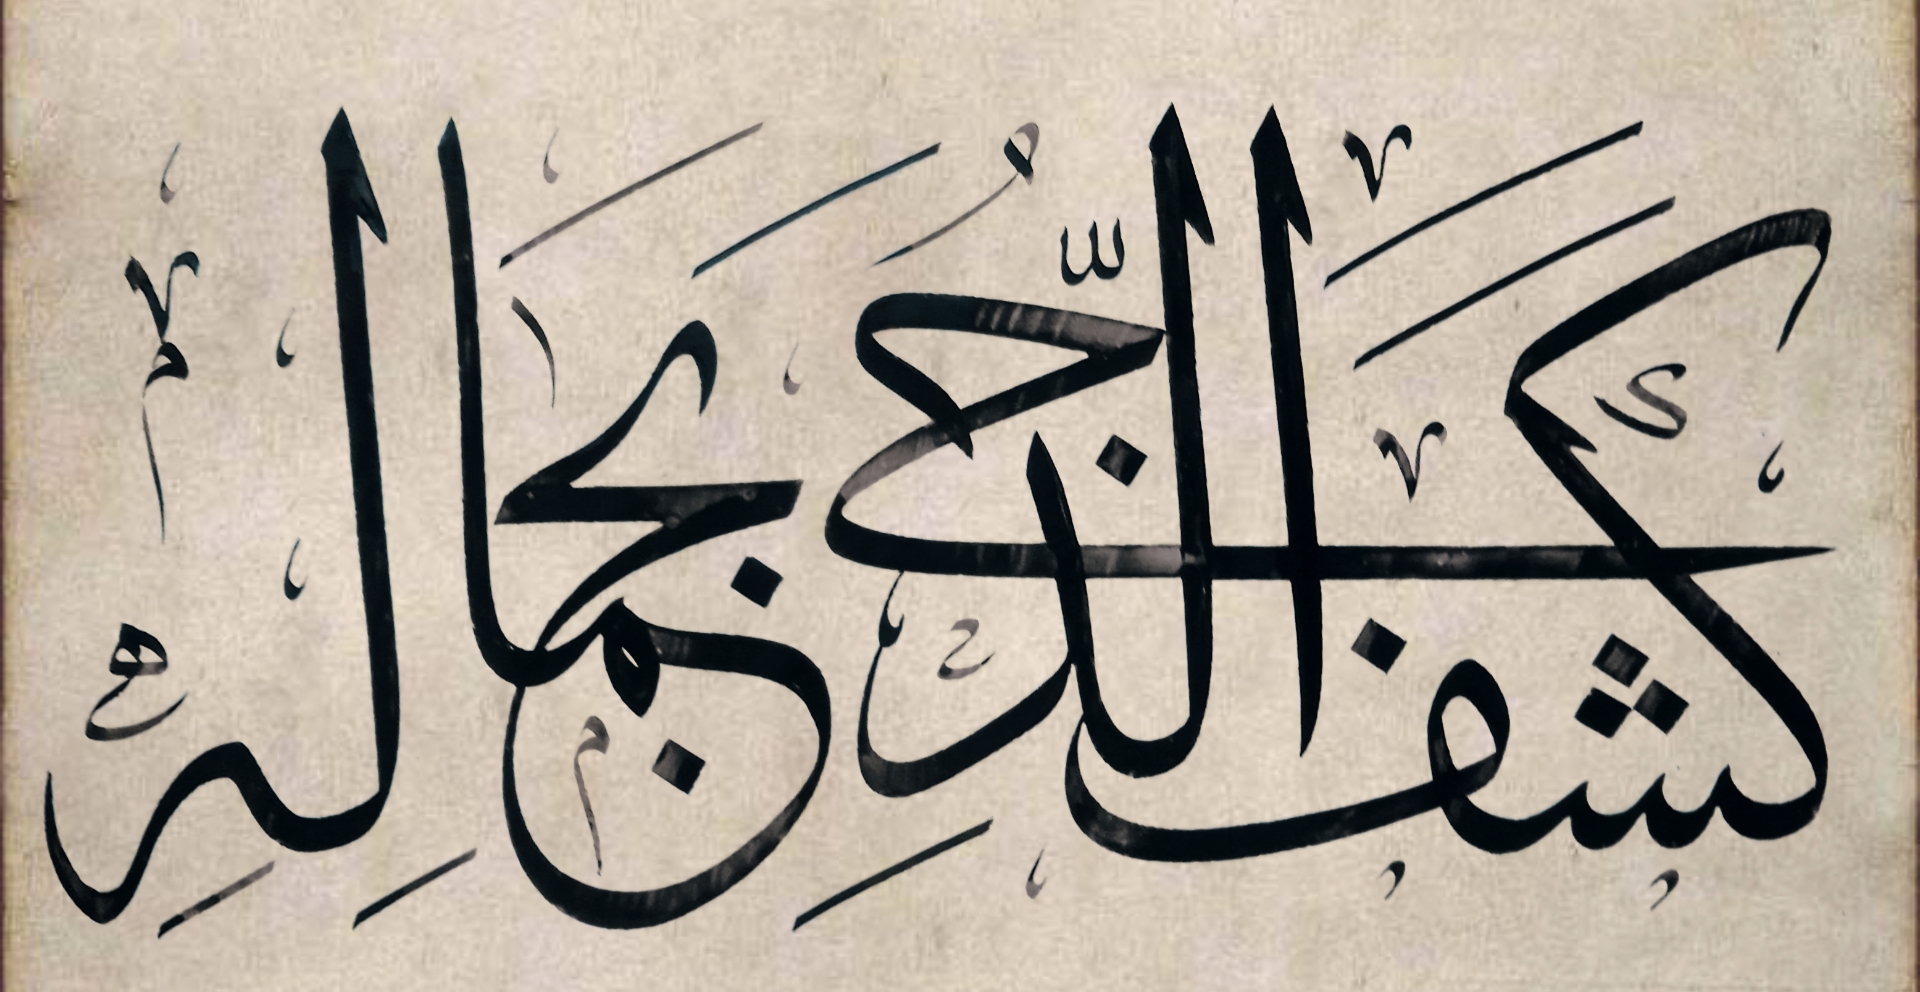 كَشَفَ الدُّجَى بِجَمَالِهِ